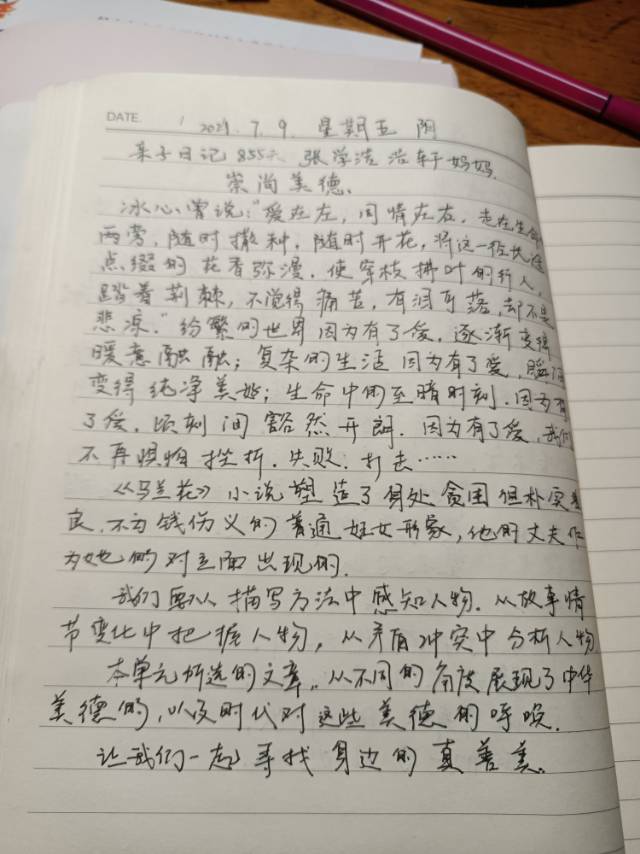 DATE.
2021.7.9. 星期五 阴
亲子日记 855天 张学浩 浩轩妈妈.
崇尚美德.
冰心曾说:“爱在左,同情在右,走在生命
两旁,随时撒种,随时开花,将这一径长途
点缀的花香弥漫.使穿枝拂叶的行人,
踏着荆棘,不觉得痛苦,有泪可落,却不是
悲凉.”纷繁的世界因为有了爱,逐渐变得
暖意融融;复杂的生活因为有了爱,瞬间
变得纯净美好;生命中的至暗时刻.因为有
了爱,顷刻间豁然开朗.因为有了爱,我们
不再惧怕挫折.失败.打击……
《马兰花》小说塑造了身处贫困但朴实善
良.不为钱伤义的普通妇女形象,他的丈夫作
为她的对立面出现的.
我们要从描写方法中感知人物.从故事情
节变化中把握人物,从矛盾冲突中分析人物
本单元所选的文章..从不同的角度展现了中华
美德的,以及时代对这些美德的呼唤.
让我们一起寻找身边的真善美.